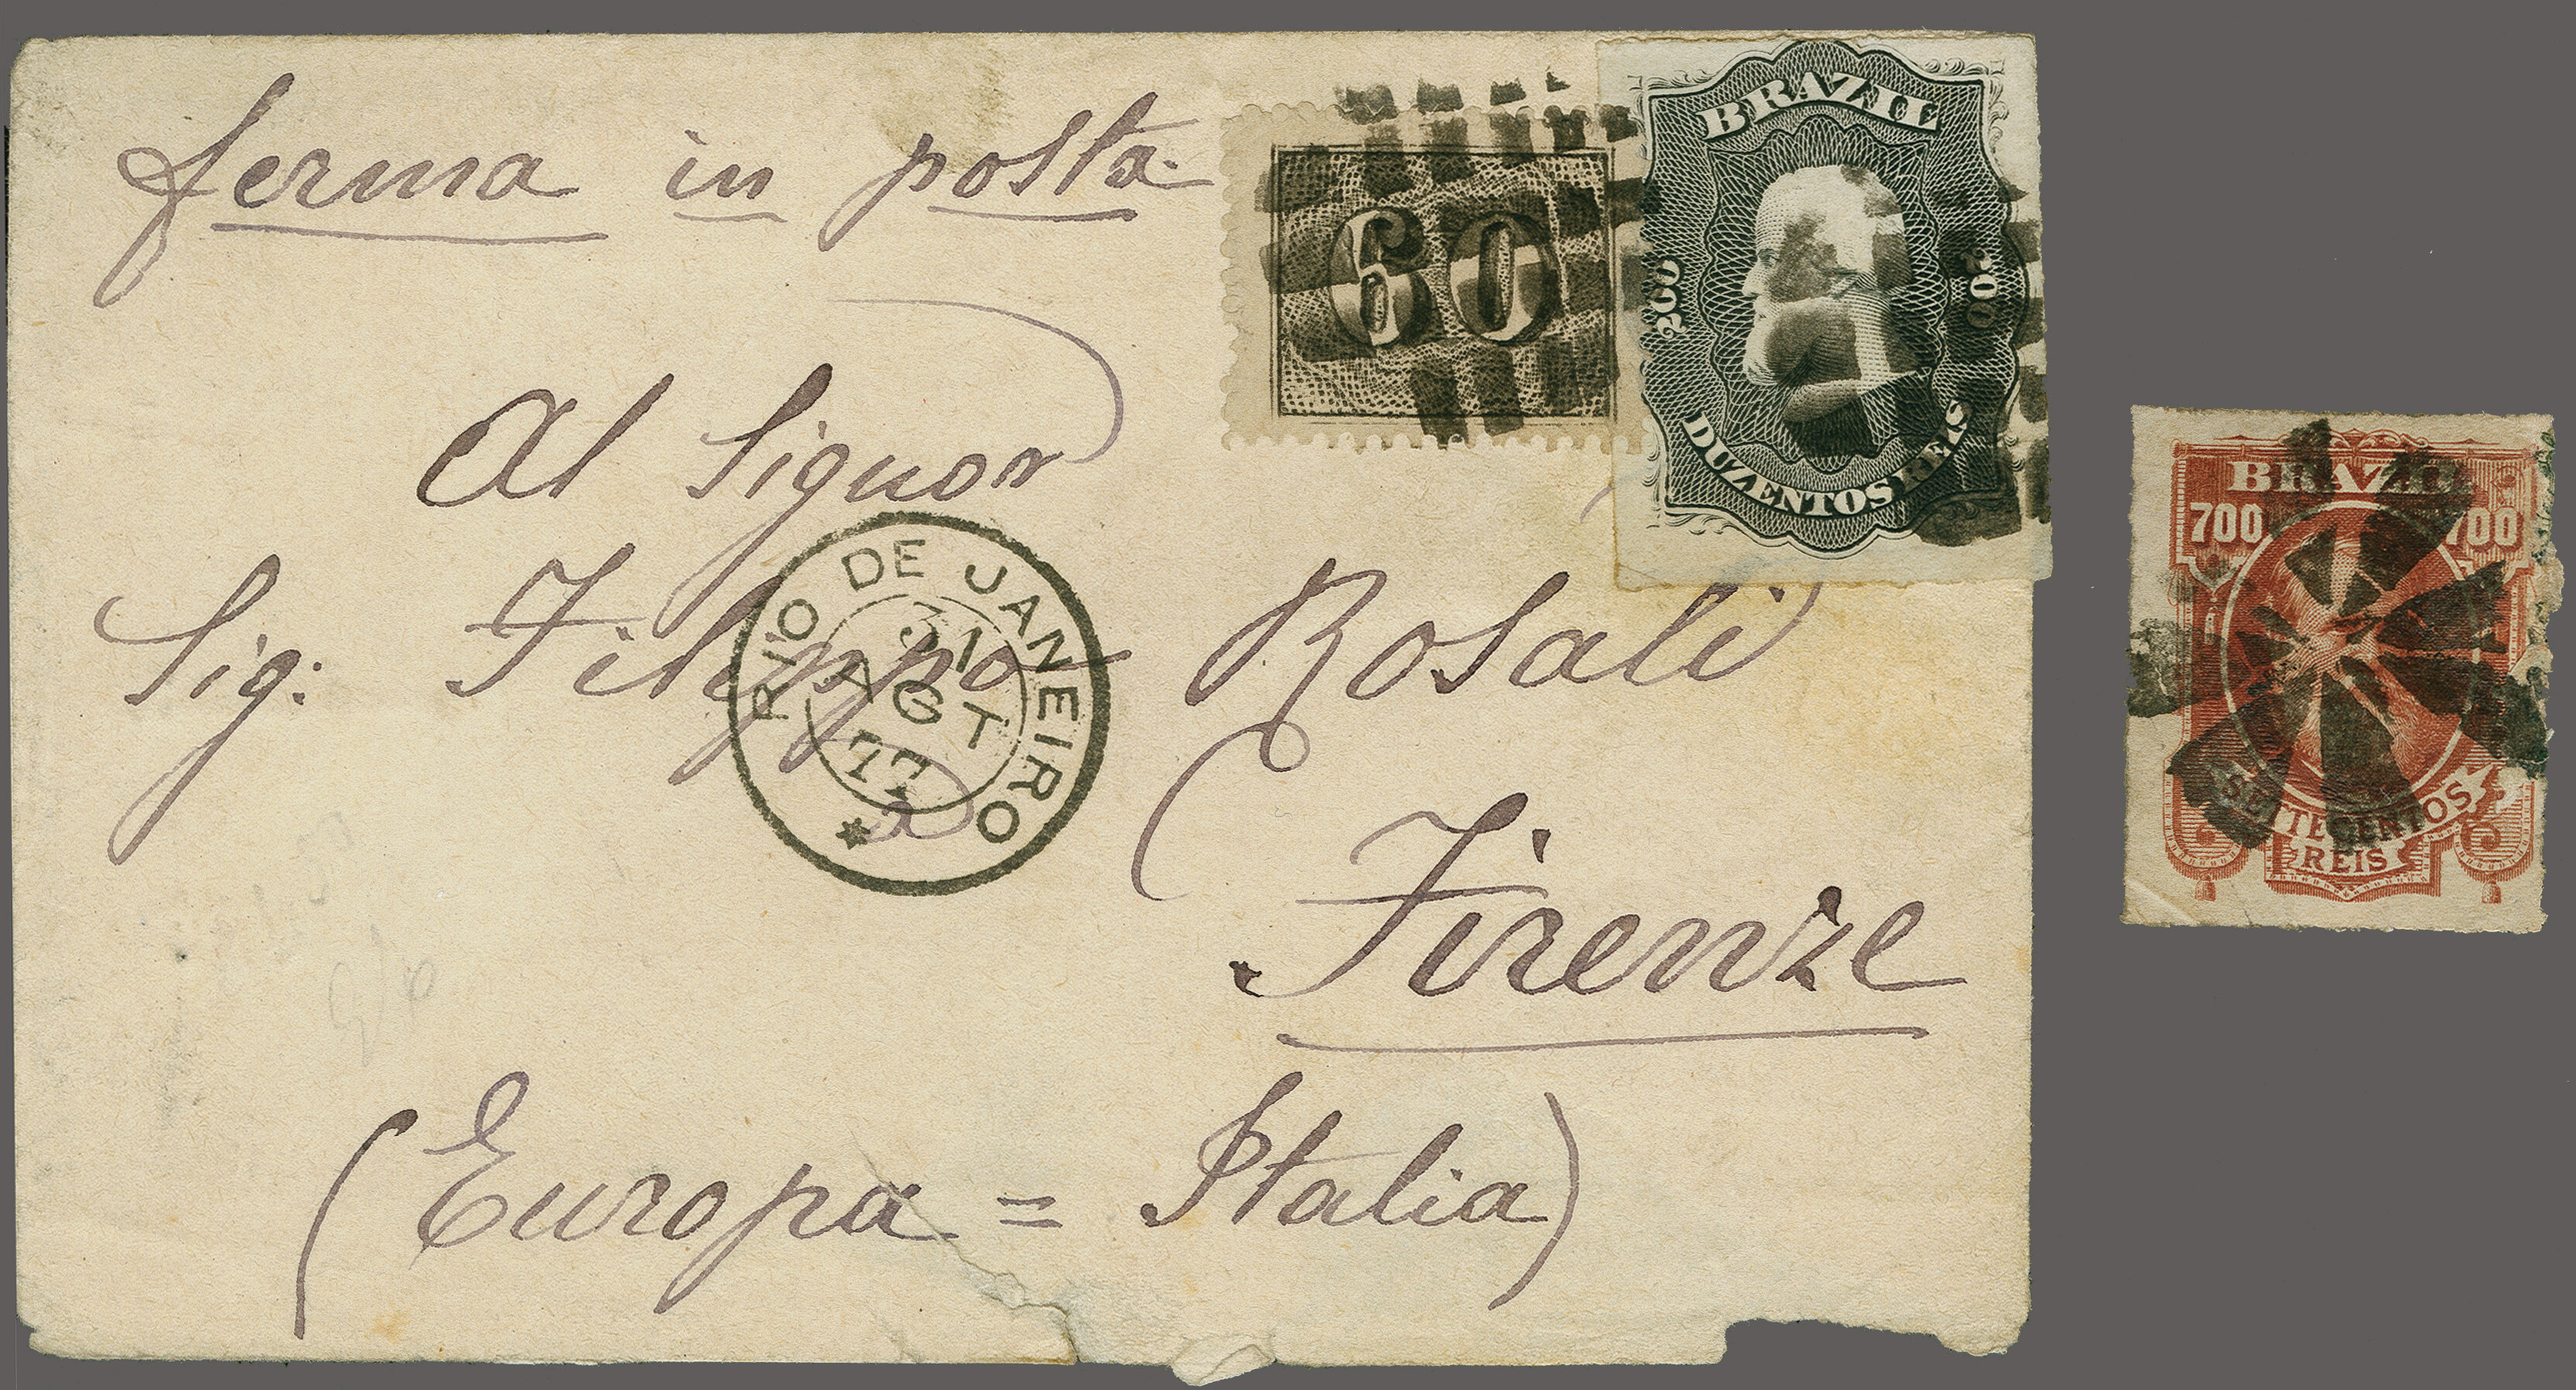 ferma in posta
60
BRAZIL
200
200
DUZENTOS REIS
Al Signor
Sig: Filippo Rosali
RIO DE JANEIRO
31
AGT
77
Firenze
(Europa = Italia)
BRAZIL
700
700
SETTECENTOS
REIS